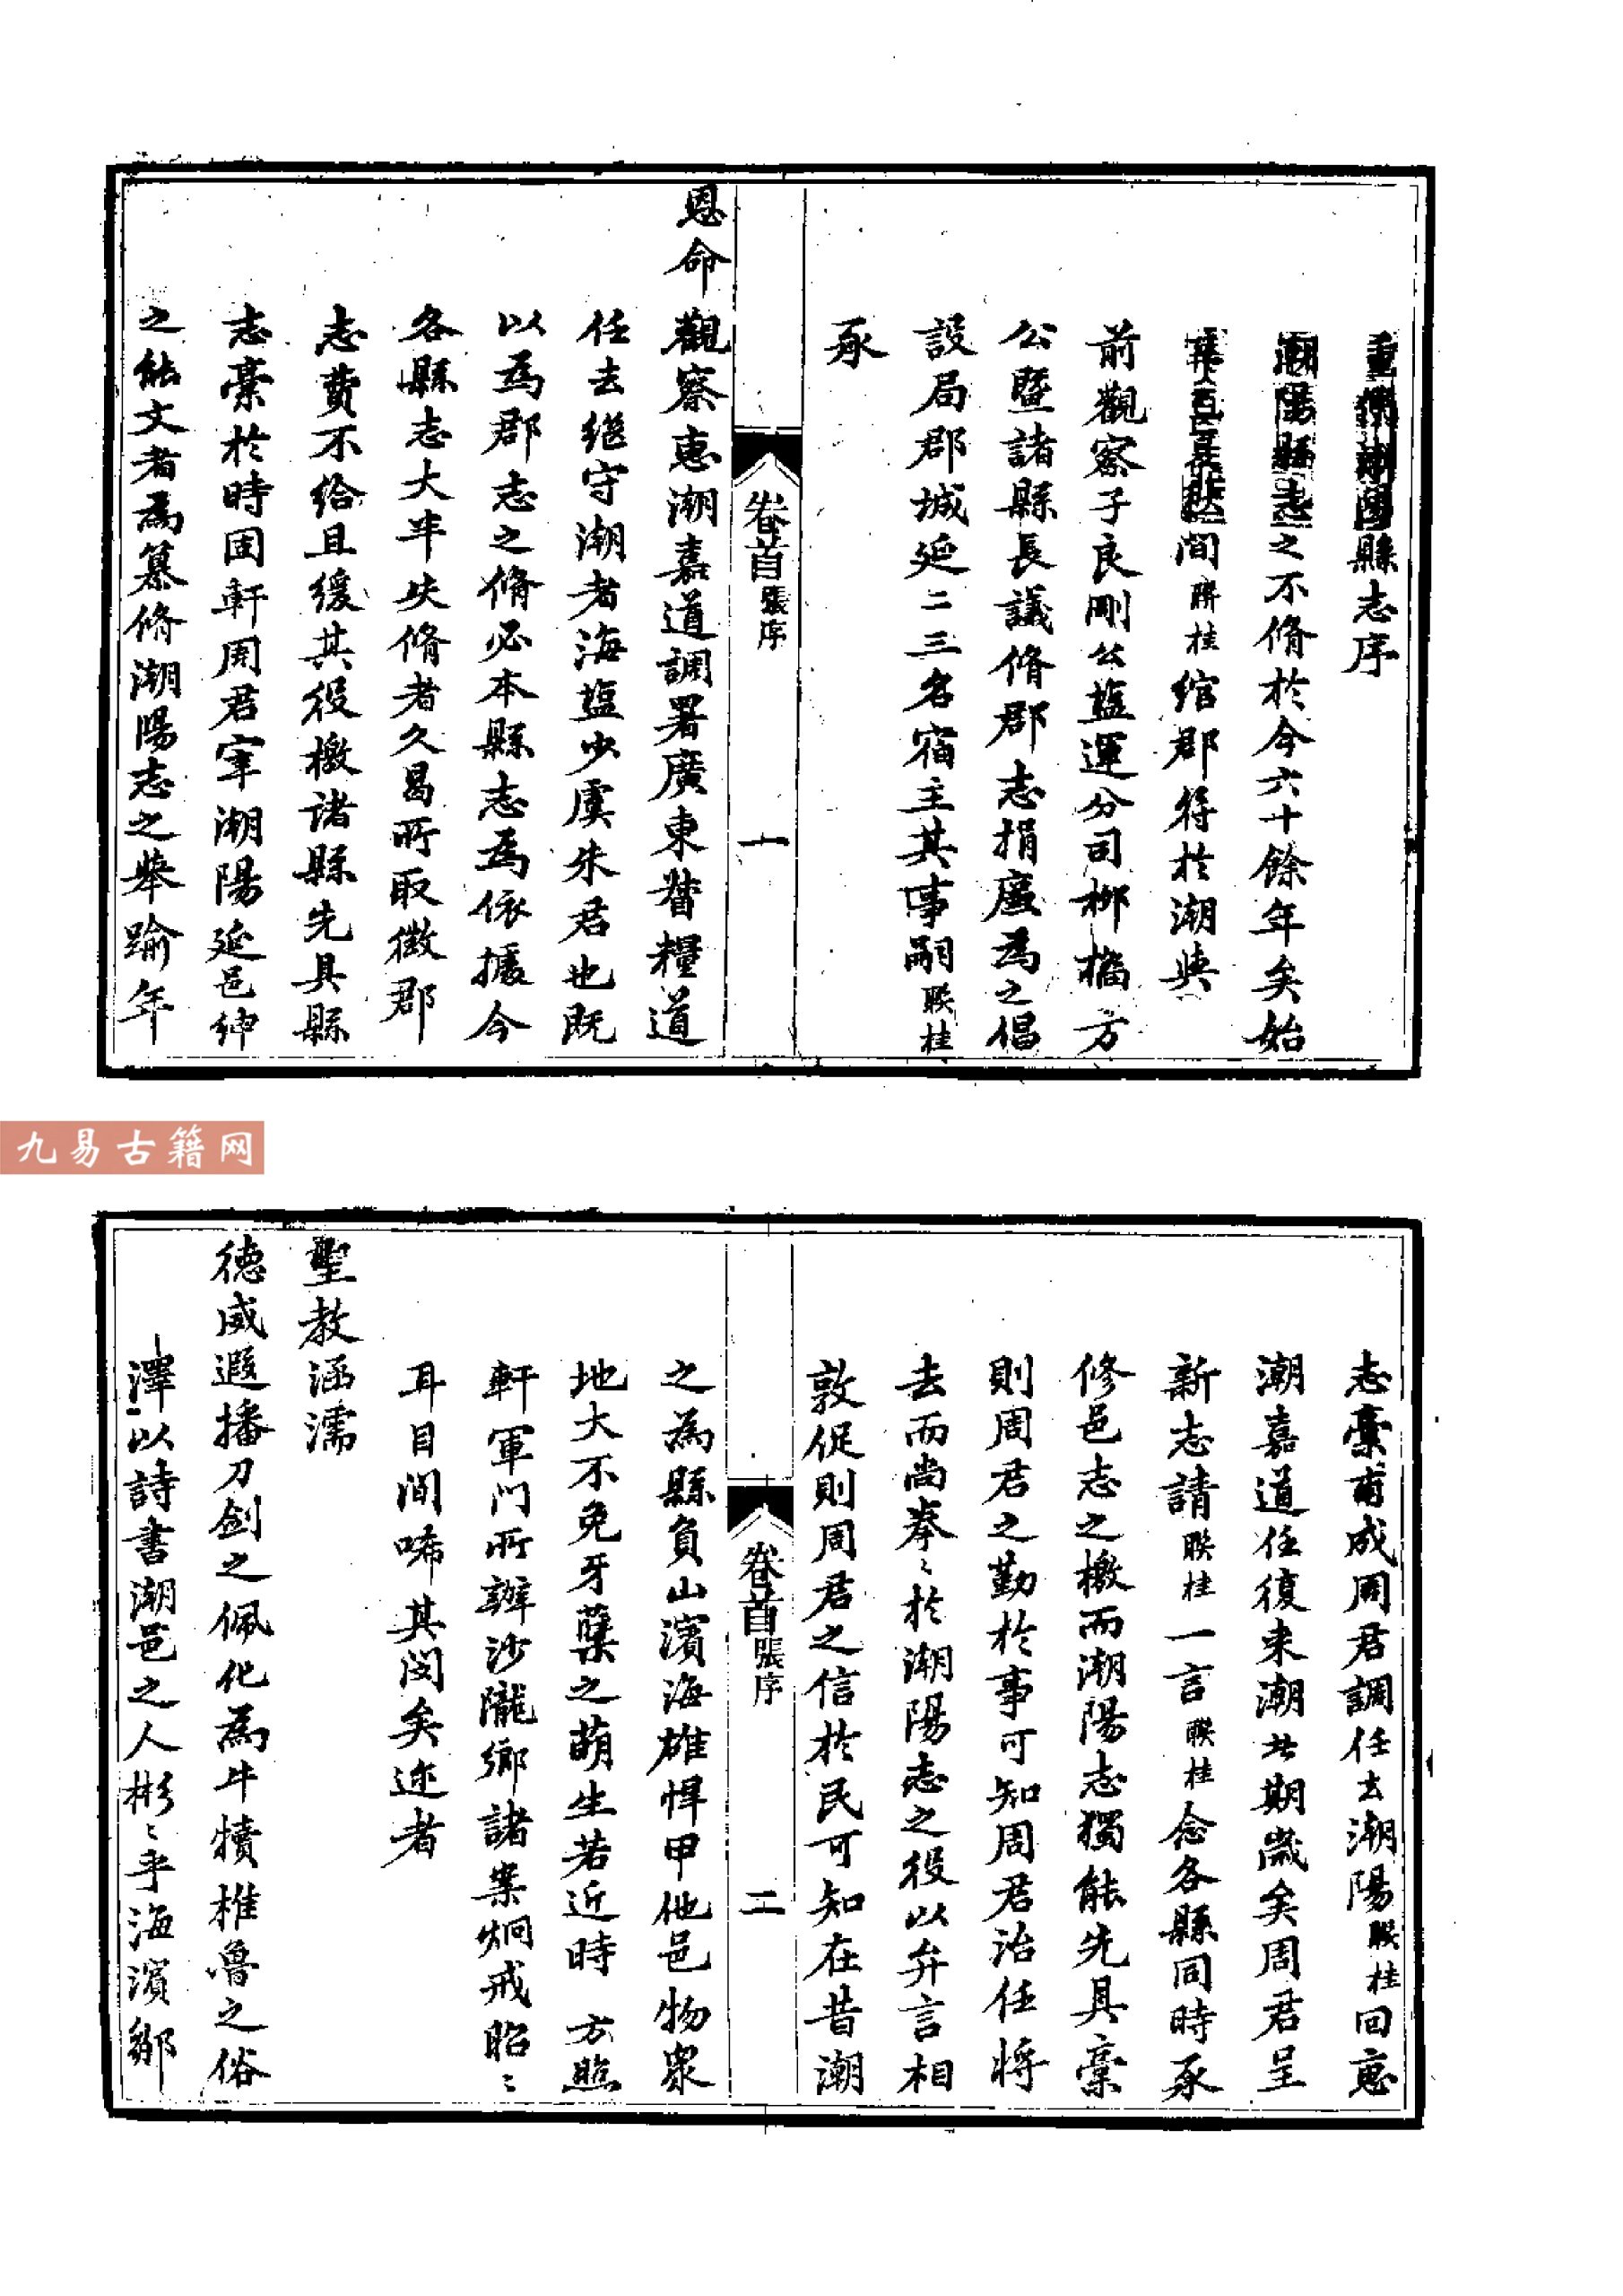 重修潮陽縣志序
潮陽縣志之不脩於今六十餘年矣始
間聨桂綰郡符於潮與
前觀察子良剛公鹽運分司栁橋方
公曁諸縣長議脩郡志捐廉為之倡
設局郡城延二三名宿主其事嗣聨桂
承
恩命觀察惠潮嘉道調署廣東督糧道
任去繼守潮者海鹽少虞朱君也既
以為郡志之脩必本縣志為依據今
各縣志大半失脩者久曷所取徵郡
志費不給且緩其役檄諸縣先具縣
志稾於時固軒周君宰潮陽延邑紳
之能文者為纂脩潮陽志之舉踰年
卷首 張序 一
志稾甫成周君調任去潮陽聨桂回惠
潮嘉道任復來潮北期歲矣周君呈
新志請聨桂一言聨桂念各縣同時承
修邑志之檄而潮陽志獨能先具稾
則周君之勤於事可知周君治任將
去而尚拳〻於潮陽志之役以弁言相
敦促則周君之信於民可知在昔潮
之為縣負山濱海雄悍甲他邑物衆
地大不免牙蘖之萌生若近時 方照
軒軍門所辦沙隴鄉諸案炯戒昭〻
耳目間唏其閔矣迩者
聖教涵濡
德威遐播刀劍之佩化為牛犢椎魯之俗
澤以詩書潮邑之人彬〻乎海濱鄒
卷首 張序 二
九易古籍网